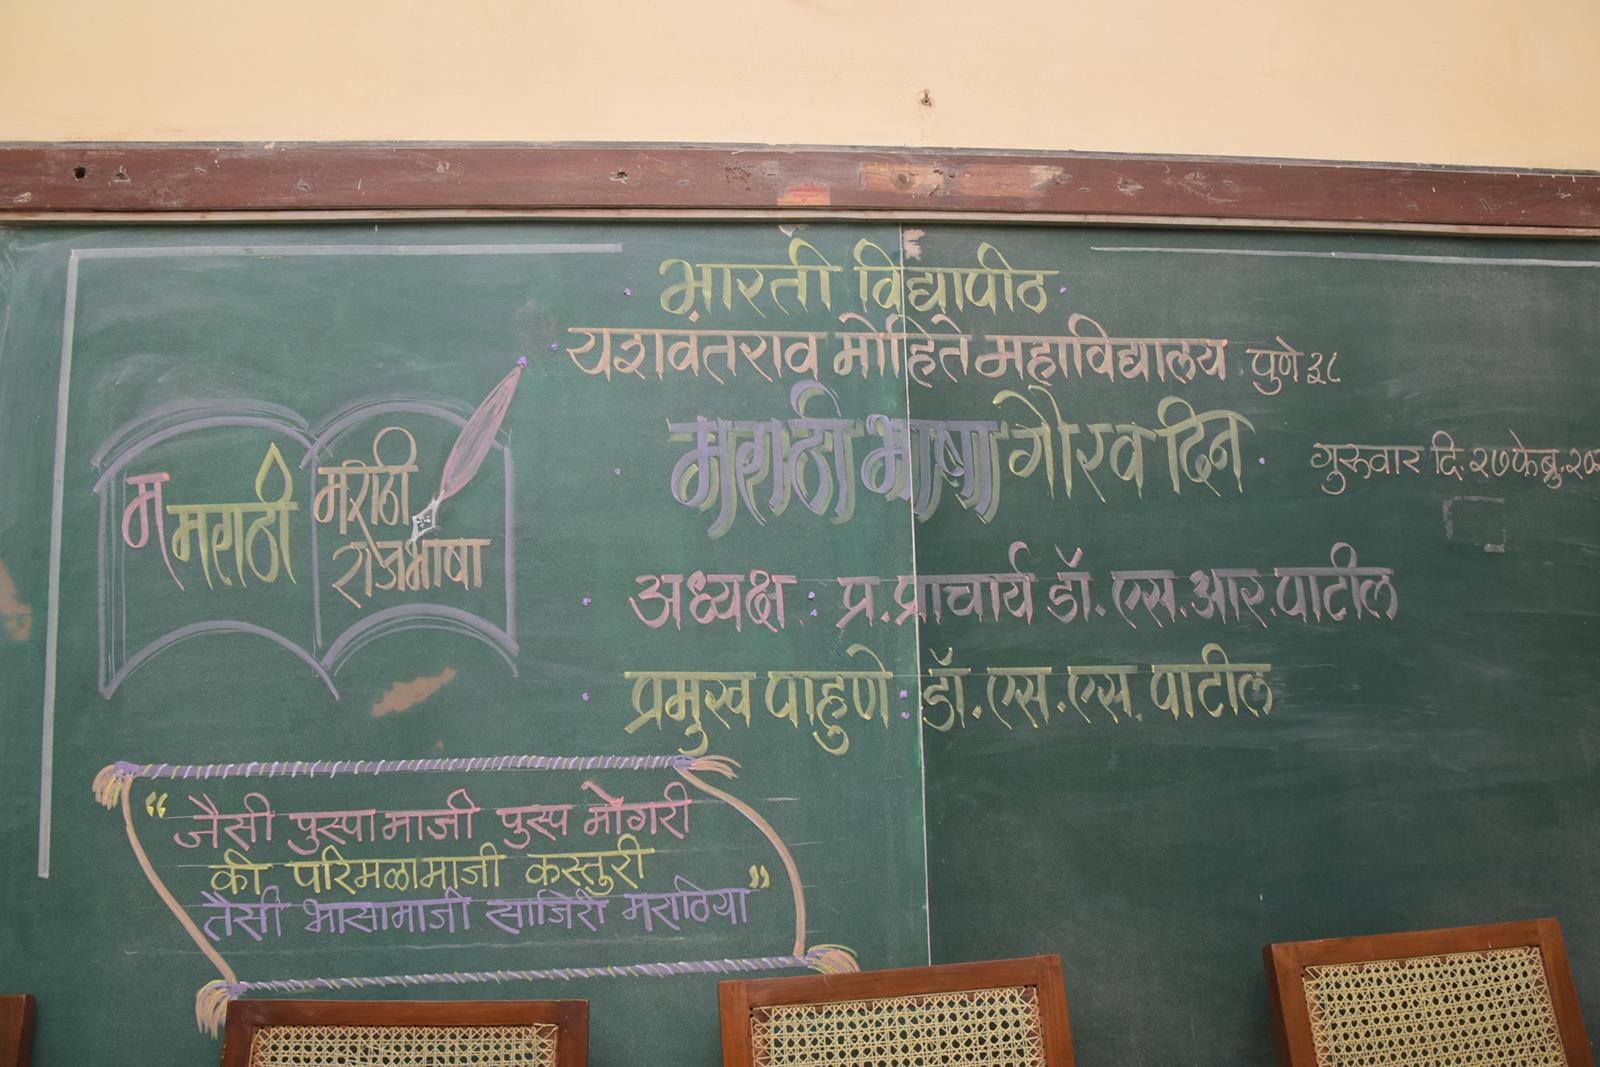 भारती विद्यापीठ
यशवंतराव मोहिते महाविद्यालय पुणे ३८
मराठी भाषा गौरव दिन
गुरुवार दि. २७ फेब्रु. २०
अध्यक्ष : प्र. प्राचार्य डॉ. एस. आर. पाटील
प्रमुख पाहुणे : डॉ. एस. एस. पाटील
म मराठी
मराठी
राजभाषा
“ जैसी पुस्पामाजी पुस्प मोगरी
की परिमळामाजी कस्तुरी
तैसी भासामाजी साजिरी मराठिया ”